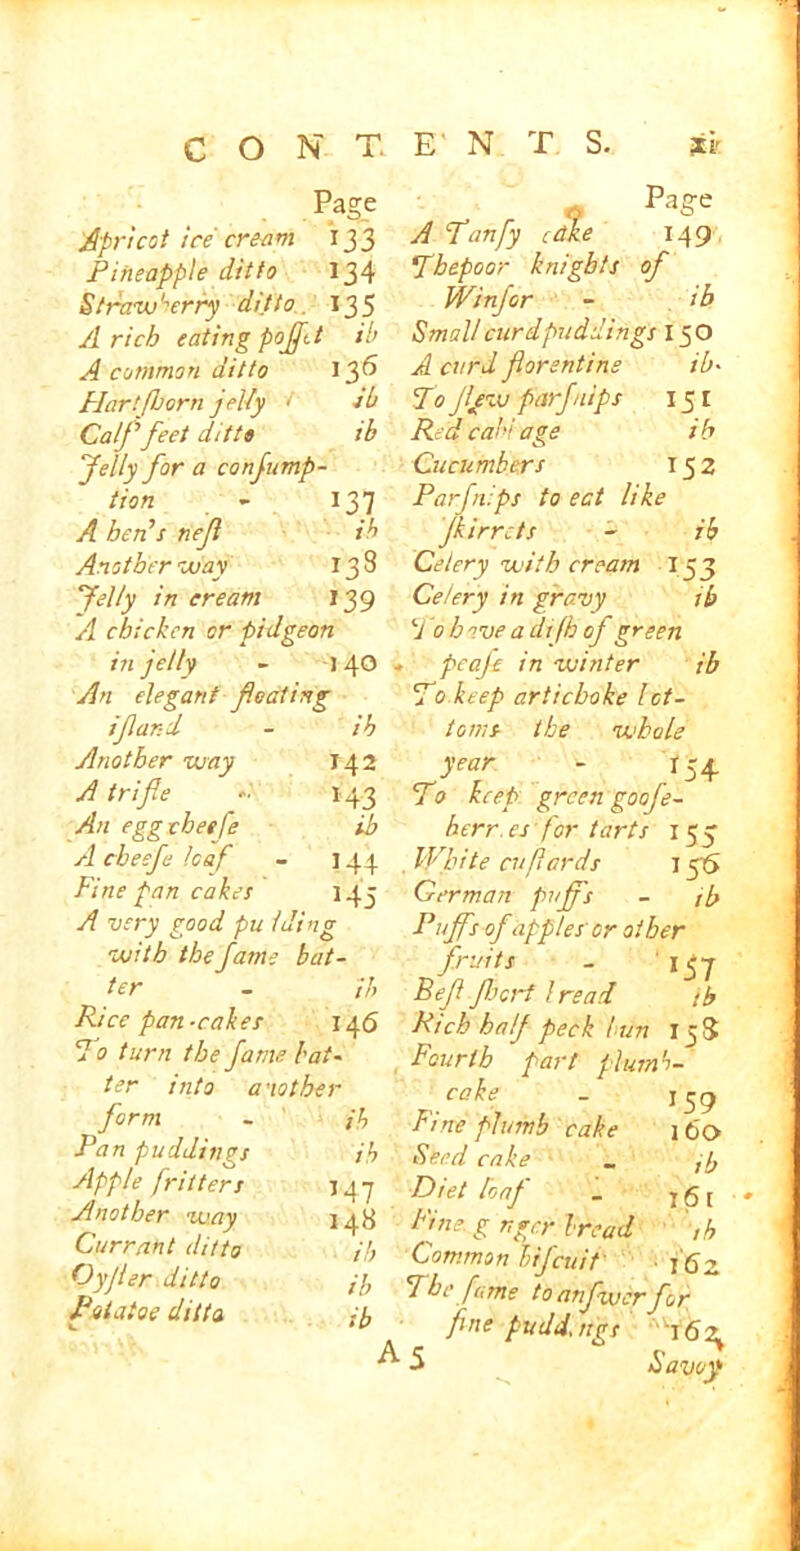 CONTENTS. xi
Page
Apricot ice cream 133
Pineapple ditto 134
Strawberry ditto. 135
A rich eating poſſet ib
A common ditto 136
Hartſhorn jelly ib
Calf feet ditto ib
Jelly for a conſump-
tion - 137
A hen's neſt ib
Another way 138
Jelly in cream 139
A chicken or pidgeon
in jelly - 140
An elegant floating
iſland - ib
Another way 142
A trifle - 143
An egg cheeſe ib
A cheeſe loaf - 144
Fine pan cakes 145
A very good pudding
with the ſame bat-
ter - ib
Rice pan-cakes 146
To turn the ſame bat-
ter into another
form - ib
Pan puddings ib
Apple fritters 147
Another way 148
Currant ditto ib
Oyſter ditto ib
Potatoe ditto ib
Page
A Tanſy cake 149
The poor knights of
Winſor - ib
Small curd puddings 150
A curd florentine ib.
To ſtew parſnips 151
Red cabbage ib
Cucumbers 152
Parſnips to eat like
ſkirrets - ib
Celery with cream 153
Celery in gravy ib
To have a diſh of green
peaſe in winter ib
To keep artichoke bot-
toms the whole
year - 154
To keep green gooſe-
berries for tarts 155
White cuſtards 156
German puffs - ib
Puffs of apples or other
fruits - 157
Beſt ſhort bread ib
Rich half peck bun 158
Fourth part plumb-
cake - 159
Fine plumb cake 160
Seed cake - ib
Diet loaf - 161
Fine gingerbread ib
Common biſcuit 162
The ſame to anſwer for
fine puddings 162
A 5 Savoy